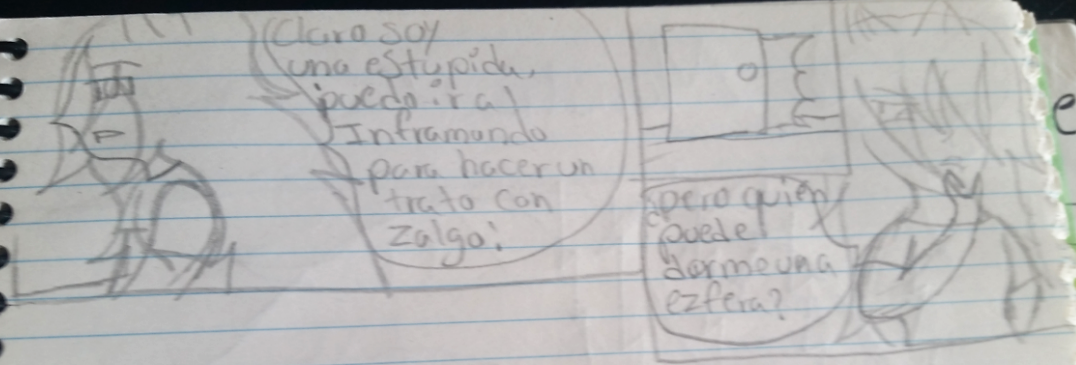 Claro soy
una estupida,
puedo ir al
Inframundo
para hacer un
trato con
zalgo!
pero quien
puede
darme una
ezfera?
e